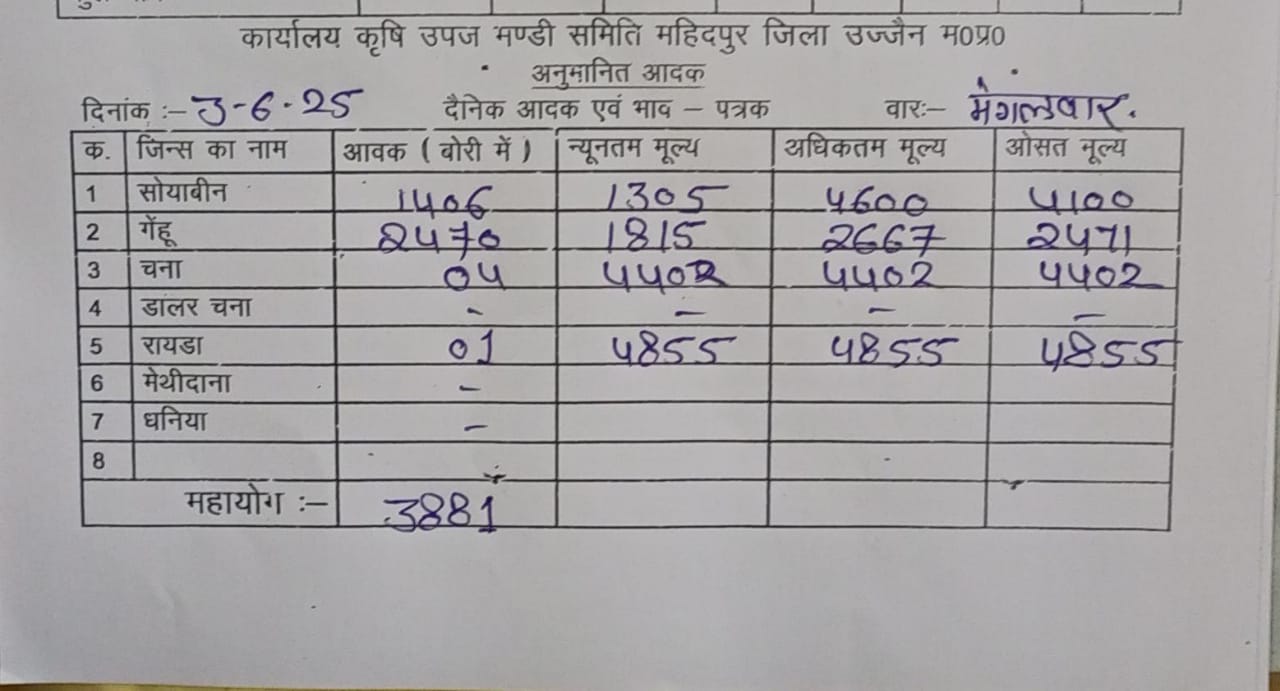 कार्यालय कृषि उपज मण्डी समिति महिदपुर जिला उज्जैन म0प्र0
अनुमानित आदक
दिनांक :– 3-6-25 दैनिक आदक एवं भाव – पत्रक वारः– मंगलवार.
क. जिन्स का नाम आवक ( बोरी में ) न्यूनतम मूल्य अधिकतम मूल्य ओसत मूल्य
1 सोयाबीन 1406 1305 4600 4100
2 गेंहू 2470 1815 2667 2471
3 चना 04 4402 4402 4402
4 डालर चना - - - -
5 रायडा 01 4855 4855 4855
6 मेथीदाना -
7 धनिया -
8
महायोग :– 3881